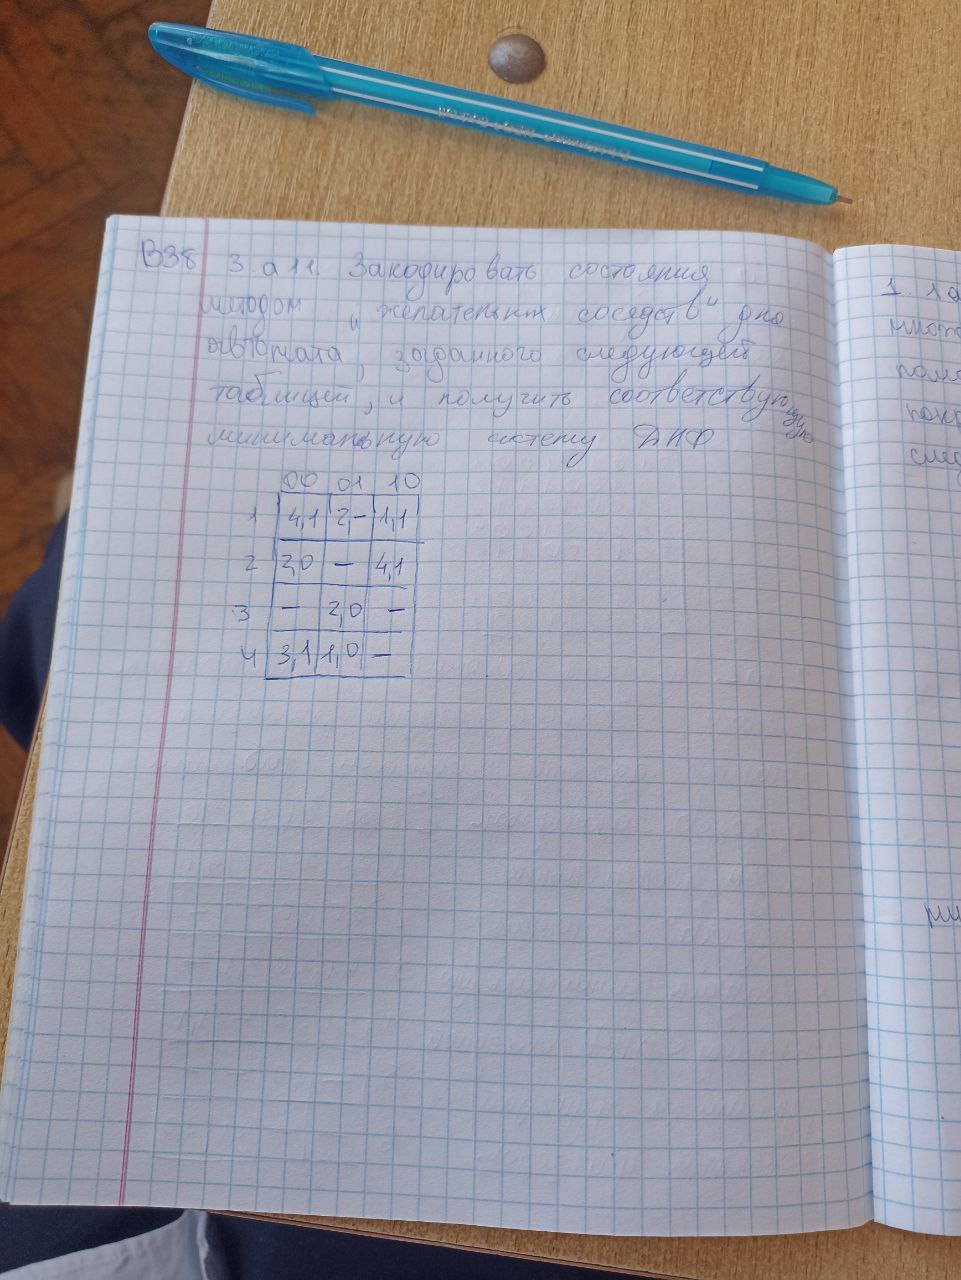 В38 3.а11. Закодировать состояния
методом "желательных соседств" для
автомата, заданного следующей
таблицей, и получить соответствующую
минимальную систему ДНФ
00 01 10
1 4,1 2,– 1,1
2 2,0 – 4,1
3 – 2,0 –
4 3,1 1,0 –
1.